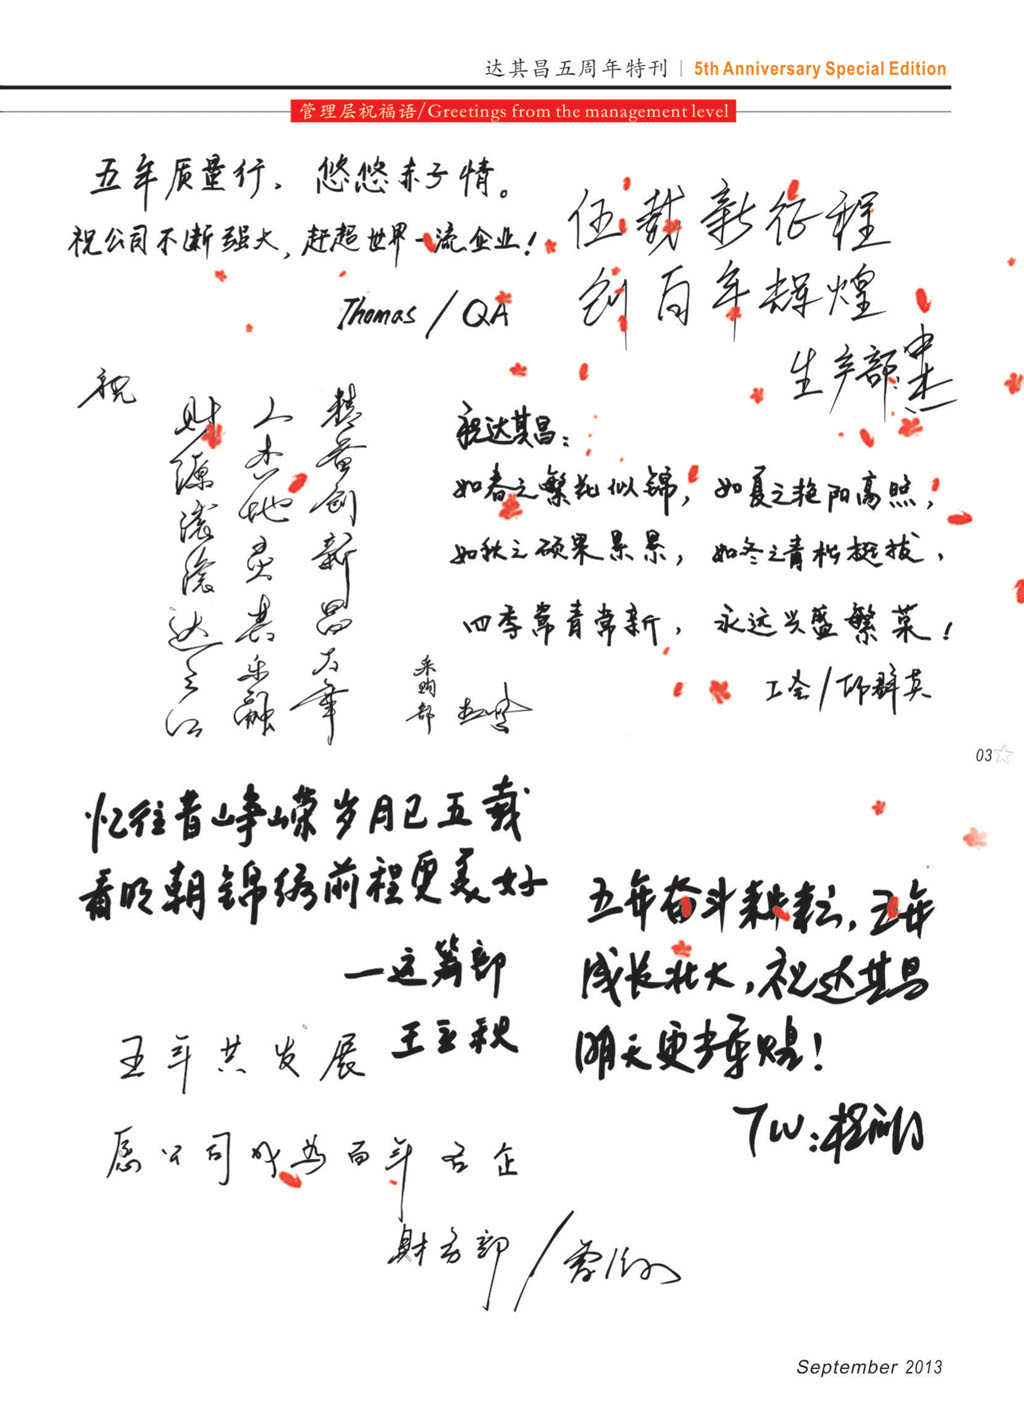 达其昌五周年特刊 | 5th Anniversary Special Edition
管理层祝福语/Greetings from the management level
五年质量行、悠悠赤子情。
祝公司不断强大,赶超世界一流企业!
Thomas / QA
伍载新征程
创百年辉煌
生产部:
祝
精益创新昌万年
人杰地灵其乐融
财源滚滚达三江
采购部
祝达其昌:
如春之繁花似锦,如夏之艳阳高照,
如秋之硕果累累,如冬之青松挺拔,
四季常青常新,永远兴盛繁荣!
工艺/邱群英
03
忆往昔峥嵘岁月已五载
看明朝锦绣前程更美好
一运筹部
王立秋
五年奋斗耕耘,五年
成长壮大,祝达其昌
明天更加辉煌!
TW:程
五年共发展
愿公司成为百年名企
财务部/
September 2013